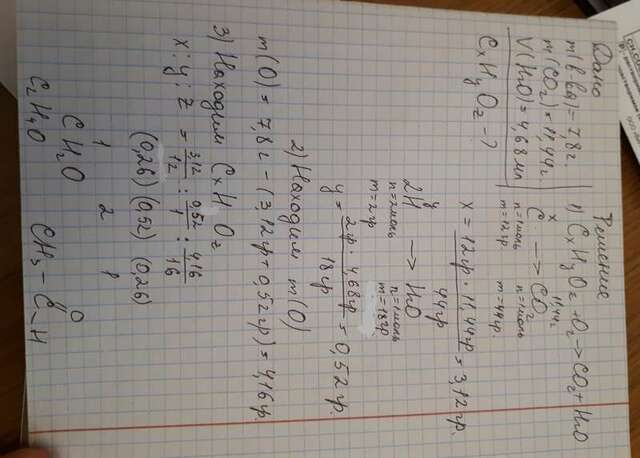 Дано
m(в-ва) = 7,8 г
m(CO₂) = 11,44 г.
V(H₂O) = 4,68 мл
CxHyOz - ?
Решение
1) CxHyOz + O₂ → CO₂ + H₂O
x 11,44г
C → CO₂
n=1моль n=1моль
m=12гр m=44гр.
x = 12гр · 11,44гр / 44гр = 3,12гр.
y
2H → H₂O
n=2моль n=1моль
m=2гр m=18гр.
y = 2гр · 4,68гр / 18гр = 0,52гр.
2) Находим m(O)
m(O) = 7,8г - (3,12гр + 0,52гр) = 4,16гр.
3) Находим CxHyOz
x : y : z = 3,12/12 : 0,52/1 : 4,16/16
(0,26) (0,52) (0,26)
1 2 1
CH₂O
C₂H₄O CH₃ - C O H